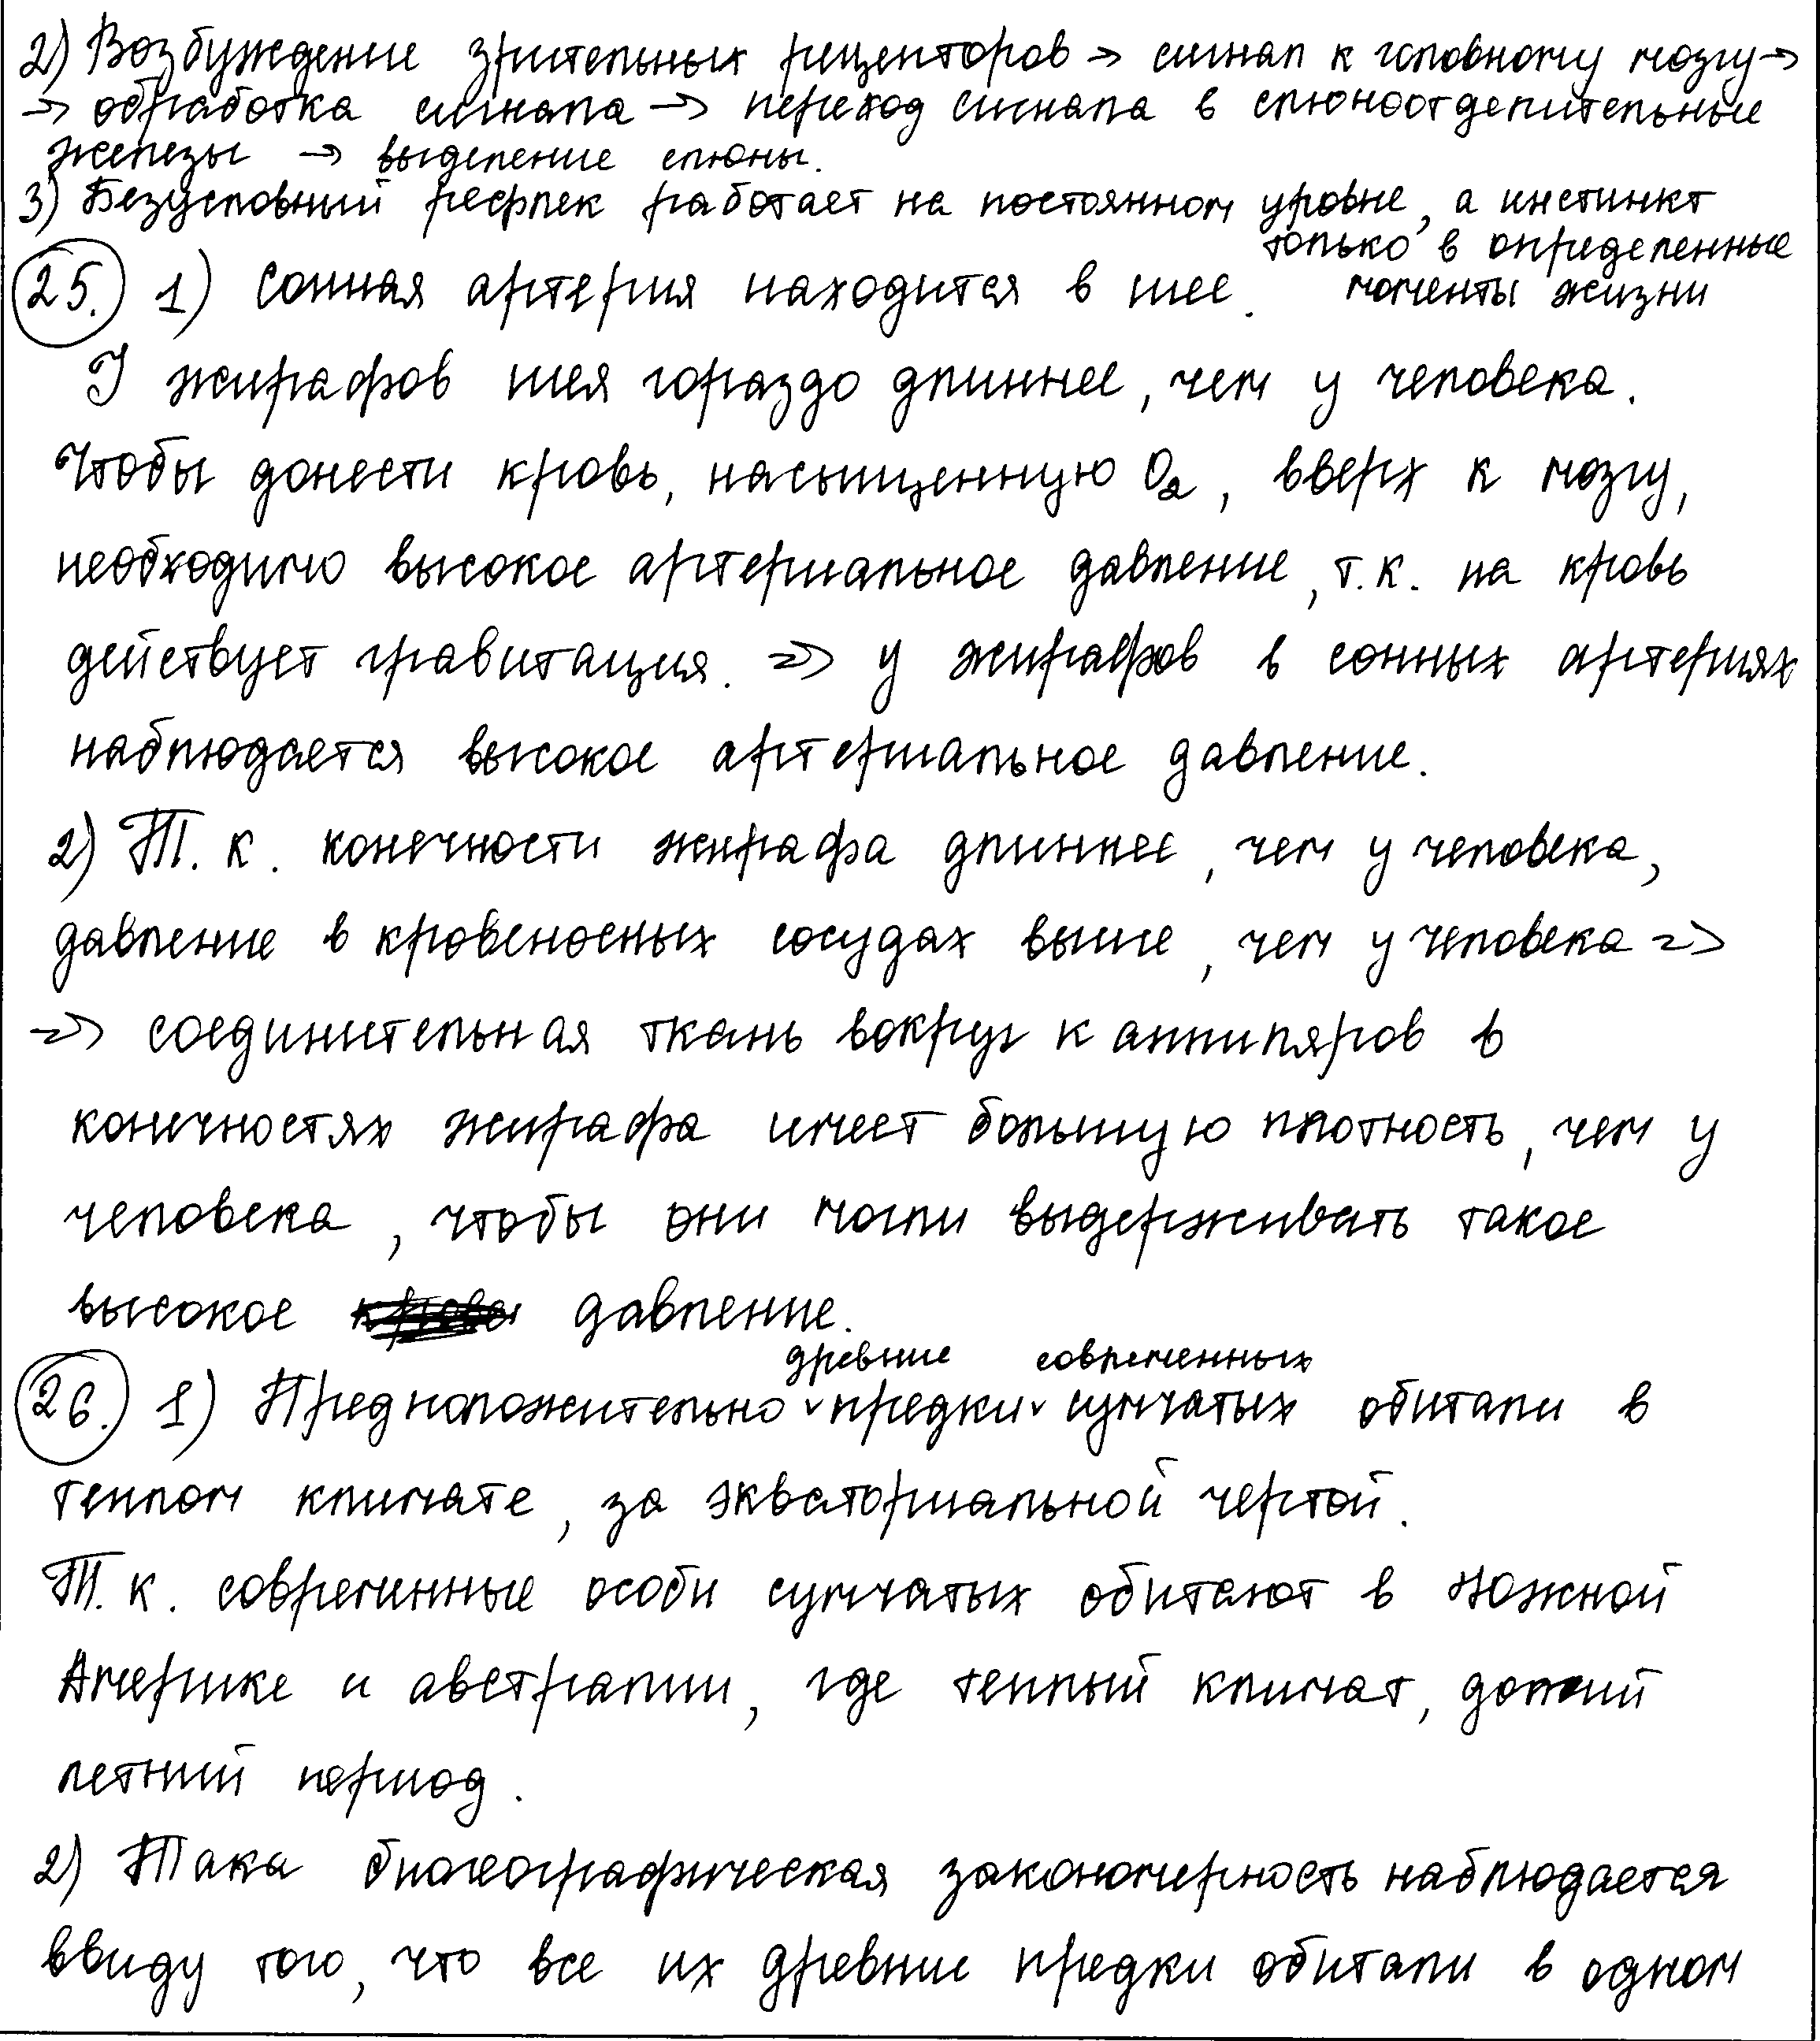 2) Возбуждение зрительных рецепторов → сигнал к головному мозгу →
→ обработка сигнала → переход сигнала в слюноотделительные
железы → выделение слюны.
3) Безусловный рефлек работает на постоянном уровне, а инстинкт
только в определенные
моменты жизни
25. 1) Сонная артерия находится в шее.
У жирафов шея гораздо длиннее, чем у человека.
Чтобы донести кровь, насыщенную O2, вверх к мозгу,
необходимо высокое артериальное давление, т.к. на кровь
действует гравитация. => у жирафов в сонных артериях
наблюдается высокое артериальное давление.
2) Т. к. конечности жирафа длиннее, чем у человека,
давление в кровеносных сосудах выше, чем у человека =>
=> соединительная ткань вокруг капиляров в
конечностях жирафа имеет большую плотность, чем у
человека, чтобы они могли выдерживать такое
высокое давление.
26. 1) Предположительно древние предки современных сумчатых обитали в
теплом климате, за экваториальной чертой.
Т. к. современные особи сумчатых обитают в Южной
Америке и австралии, где теплый климат, долгий
летний период.
2) Така биогеографическая закономерность наблюдается
ввиду того, что все их древние предки обитали в одном